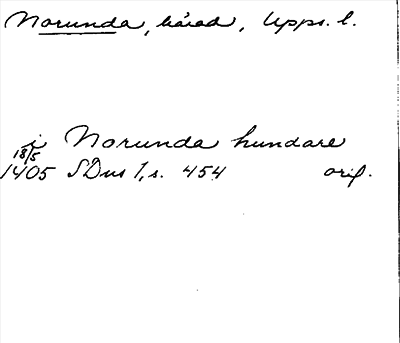 Norunda, härad, Upps. l.
i Norunda hundare
18/5
1405 SDns 1, s. 454 orig.